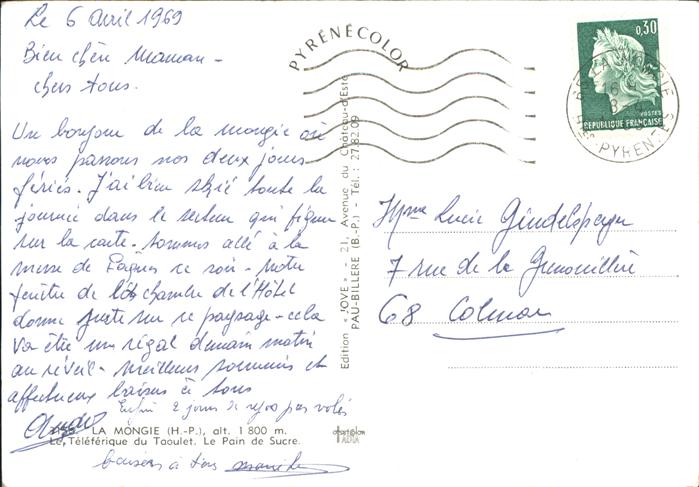 Le 6 avril 1969
Bien chère Maman -
chers tous.
Un bonjour de la Mongie où
nous passons nos deux jours
fériés. J'ai bien skié toute la
journée dans le secteur qui figure
sur la carte. Sommes allé à la
messe de Pâques ce soir. Notre
fenêtre de la chambre de l'Hôtel
donne juste sur ce paysage - cela
va être un régal demain matin
au réveil. Meilleurs souvenirs et
affectueux baisers à tous
Enfin 2 jours de repos pas volés
LA MONGIE (H.-P.), alt. 1 800 m.
Le Téléférique du Taoulet. Le Pain de Sucre.
baisers à tous
PYRÉNÉCOLOR
Edition « JOVE » - 21, Avenue du Château-d'Este
PAU-BILLERE (B.-P.) - Tél. : 27.82.09
0,30
POSTES
REPUBLIQUE FRANÇAISE
LA MONGIE
PYREN
Mme Lucie
7 rue de la Grenouillère
68 Colmar